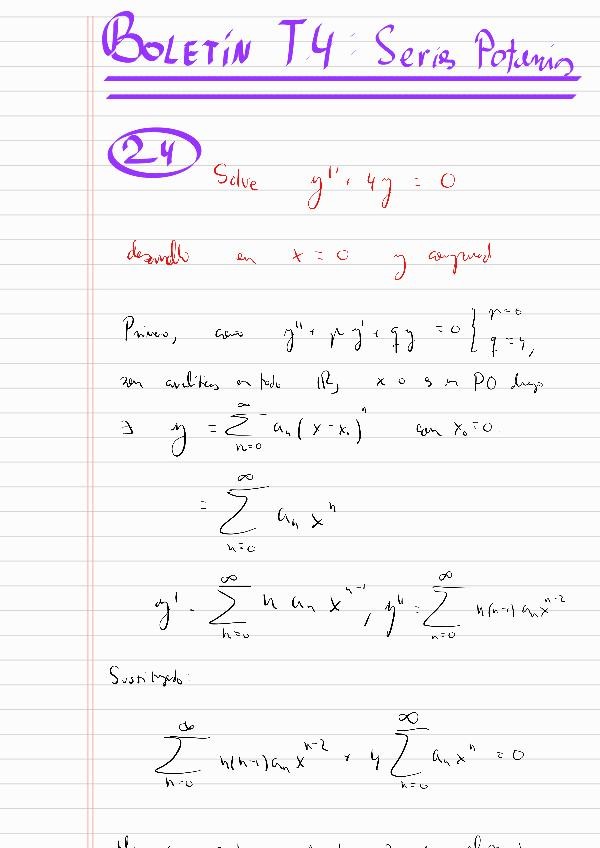 BOLETÍN T4: Series Potencias
24
Solve y'' + 4y = 0
desarrollo en x = 0 y
Primero, como y'' + py' + qy = 0 { p=0
q=4,
son analíticas en todo ℝ, x_0 es un PO luego
∃ y = ∑_{n=0}^{∞} a_n (x - x_0)^n con x_0 = 0
= ∑_{n=0}^{∞} a_n x^n
y' = ∑_{n=0}^{∞} n a_n x^{n-1}, y'' = ∑_{n=0}^{∞} n(n-1) a_n x^{n-2}
Sustituyendo:
∑_{n=0}^{∞} n(n-1) a_n x^{n-2} + 4 ∑_{n=0}^{∞} a_n x^n = 0